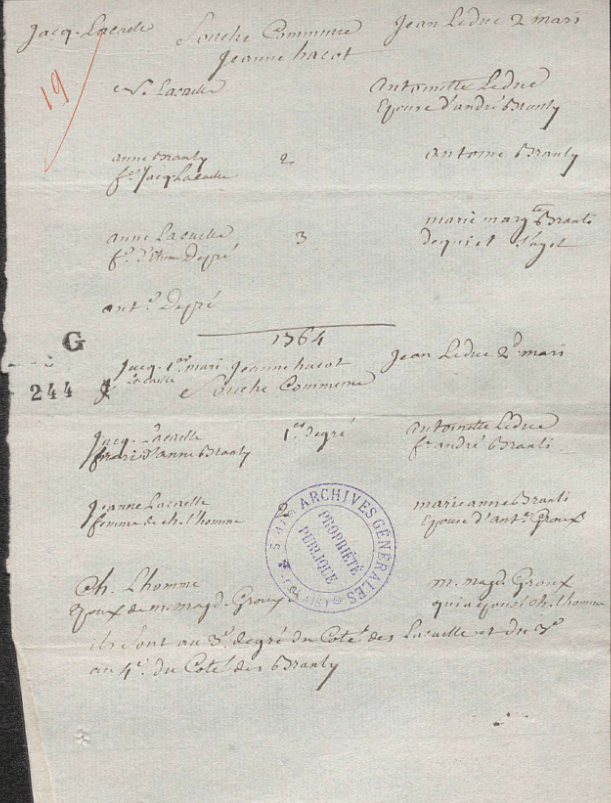 Jacq. Lacaille Souche Commune Jean Leduc 2 mari
Jeanne hacot
19
N. Lacaille Antoinette Leduc
Epouse d'andré Branly
anne Branly 2 antoine Branly
fe. Jacq Lacaille
anne Lacaille 3 marie margte Branli
fe. Depré Sagel
ant. Depré
1764
G
244
Jacq. 1er mari Jeanne hacot Jean Leduc 2d mari
Lacaille Souche Commune
Jacq. Lacaille 1er degré antoinette Leduc
mari d'anne Branly fe andré Branli
Jeanne Lacaille 2 marieanne Branli
femme de ch. l'homme Epouse d'ant. Groux
ARCHIVES GÉNÉRALES
PROPRIÉTÉ
PUBLIQUE
Ch. Lhomme m. magd. Groux
Epoux de m. magd. Groux qui a epousé ch. l'homme
ils sont au 3e. degré du Coté des Lacaille et du 3e
au 4e. du Coté des Branly